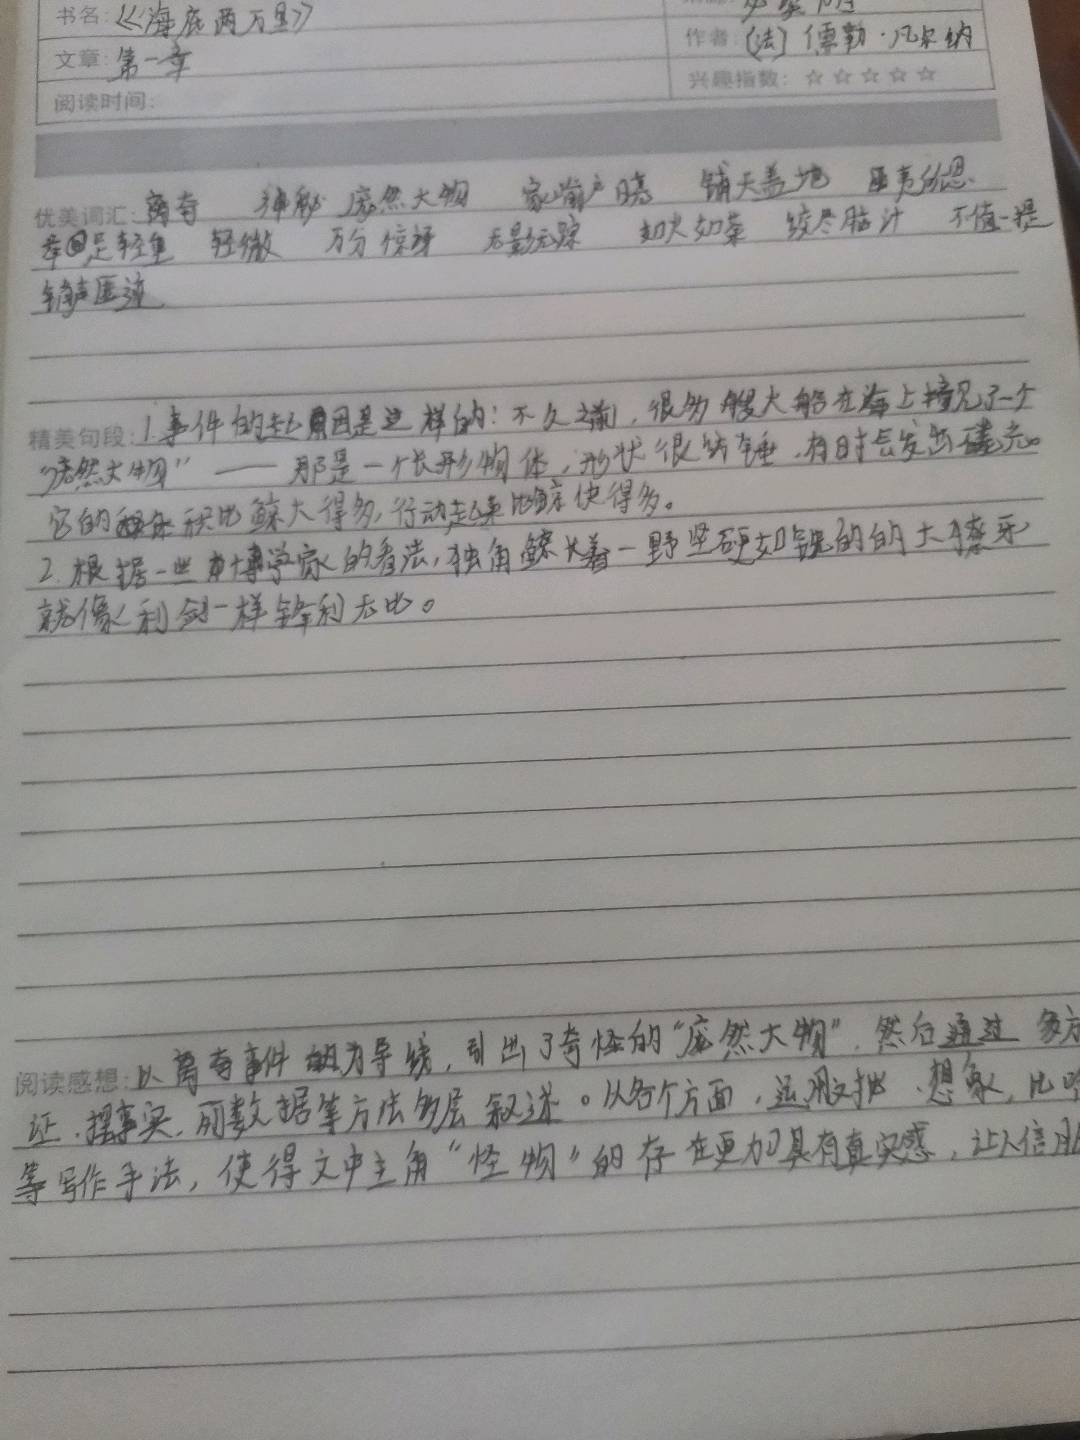 书名:《海底两万里》
作者:(法)儒勒·凡尔纳
文章:第一章
兴趣指数:☆☆☆☆☆
阅读时间:
优美词汇:离奇 神秘 庞然大物 家喻户晓 铺天盖地 匪夷所思
举足轻重 轻微 万分惊讶 无影无踪 如火如荼 绞尽脑汁 不值一提
销声匿迹
精美句段:1.事件的起因是这样的:不久之前,很多艘大船在海上撞见了一个
“庞然大物”——那是一个长形物体,形状很像纺锤,有时会发出磷光。
它的体积比鲸大得多,行动起来比鲸快得多。
2.根据一些博学家的看法,独角鲸长着一野坚硬如钢的的大獠牙
就像利剑一样锋利无比。
阅读感想:以离奇事件为导线,引出了奇怪的“庞然大物”,然后通过多方
证、摆事实、列数据等方法多层叙述。从各个方面,运用对比、想象,比喻
等写作手法,使得文中主角“怪物”的存在更加具有真实感,让人信服